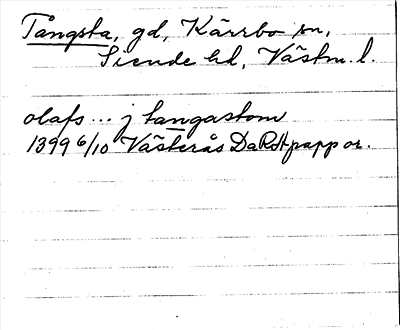 Tångsta, gd, Kärrbo sn,
Siende hd, Västm. l.
olafs ... j tangastom
1399 6/10 Västerås DaRApapp or.